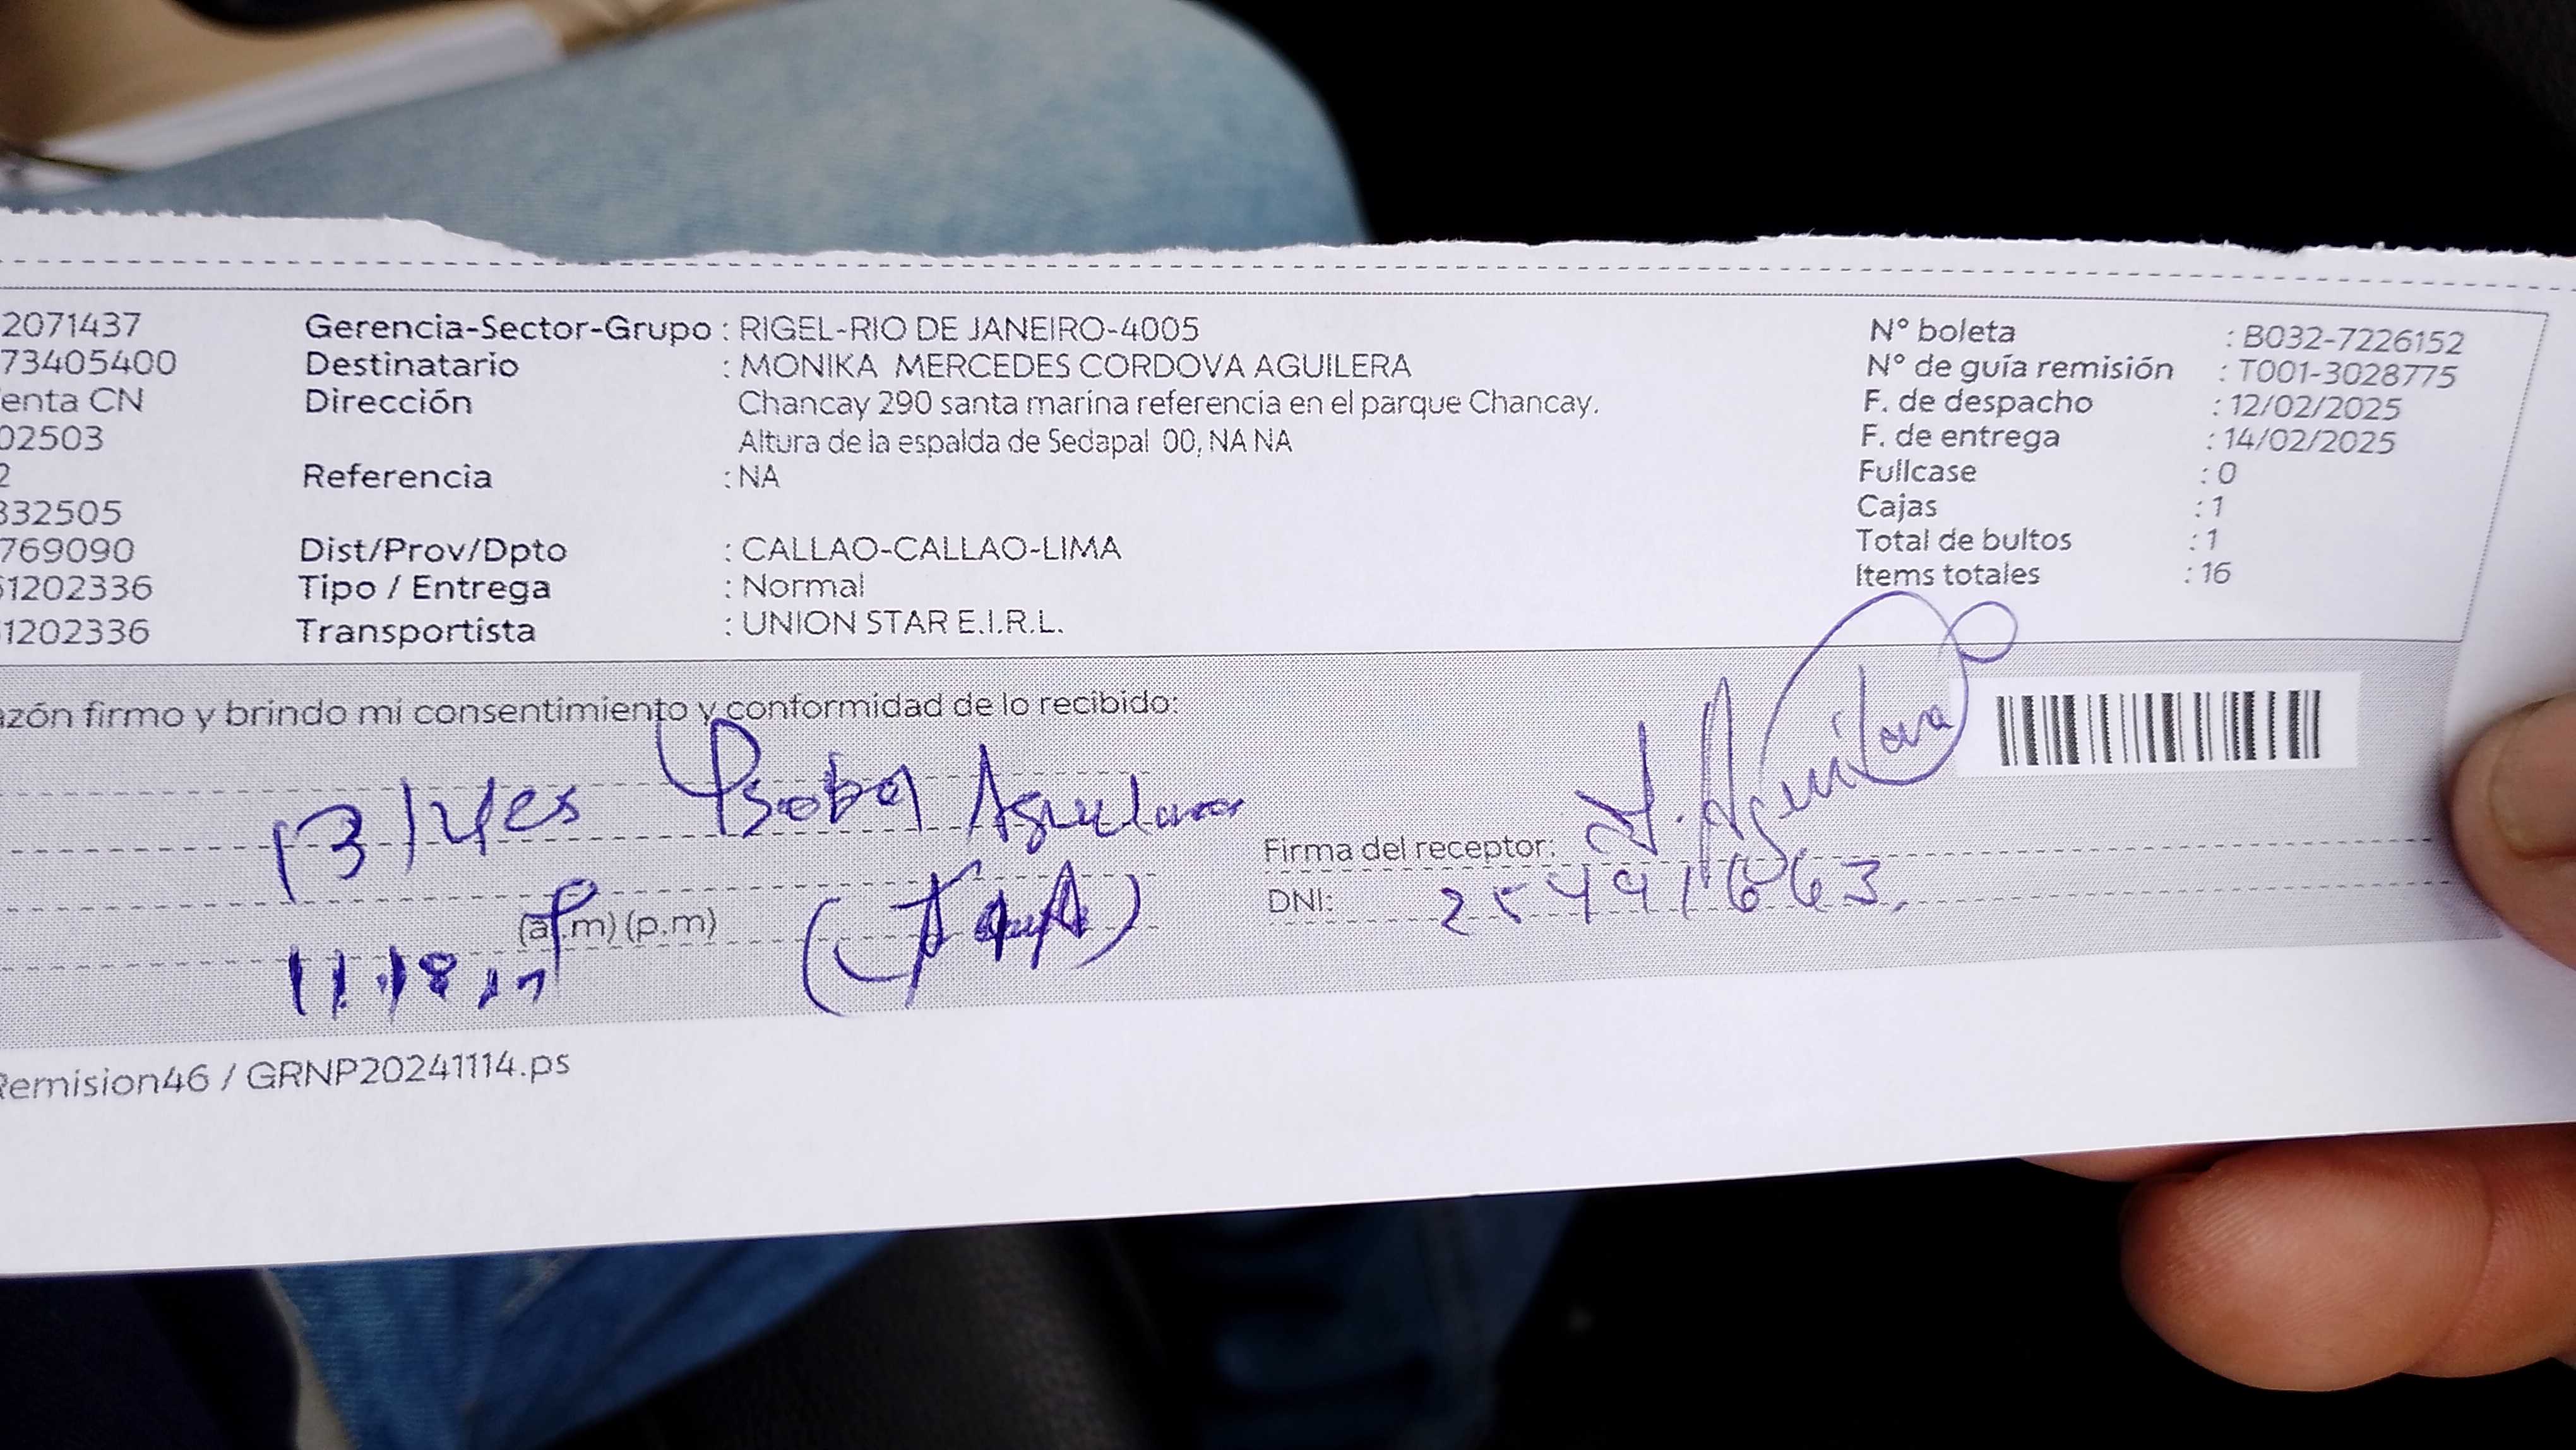 2071437 Gerencia-Sector-Grupo : RIGEL-RIO DE JANEIRO-4005 N° boleta : B032-7226152
73405400 Destinatario : MONIKA MERCEDES CORDOVA AGUILERA N° de guía remisión : T001-3028775
enta CN Dirección Chancay 290 santa marina referencia en el parque Chancay. F. de despacho : 12/02/2025
02503 Altura de la espalda de Sedapal 00, NA NA F. de entrega : 14/02/2025
2 Referencia : NA Fullcase : 0
332505 Cajas : 1
769090 Dist/Prov/Dpto : CALLAO-CALLAO-LIMA Total de bultos : 1
61202336 Tipo / Entrega : Normal Items totales : 16
1202336 Transportista : UNION STAR E.I.R.L.
azón firmo y brindo mi consentimiento y conformidad de lo recibido:
Ysabel
Firma del receptor: Y. Aguilera
(a.m) (p.m) DNI: 25491663
Remision46 / GRNP20241114.ps